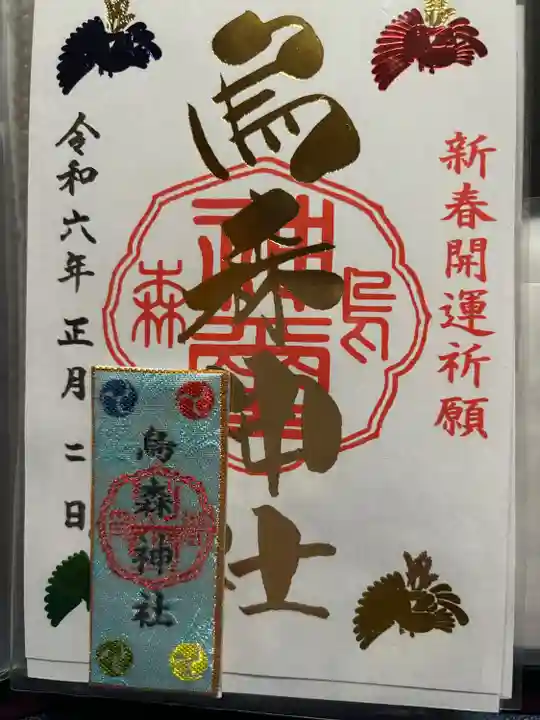 新春開運祈願
烏森神社
烏
森
令和六年正月二日
烏森神社